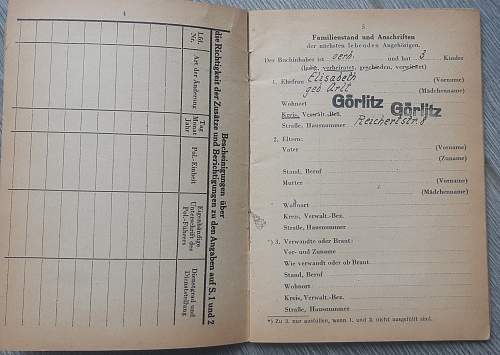 4
Bescheinigungen über
die Richtigkeit der Zusätze und Berichtigungen zu den Angaben auf S. 1 und 2
Lfd. Nr.
Art der Änderung
Tag Monat Jahr
Pol.-Einheit
Eigenhändige Unterschrift des Pol.-Führers
Dienstgrad und Dienststellung
5
Familienstand und Anschriften
der nächsten lebenden Angehörigen.
Der Buchinhaber ist verh. und hat 3 Kinder
(ledig, verheiratet, geschieden, verwitwet)
1. Ehefrau: Elisabeth (Vorname)
geb. Arlt (Mädchenname)
Wohnort Görlitz
Kreis, Verwalt.-Bez. Görlitz
Straße, Hausnummer Reichertstr. 8
2. Eltern:
Vater (Vorname)
(Zuname)
Stand, Beruf
Mutter (Vorname)
(Mädchenname)
Wohnort
Kreis, Verwalt.-Bez.
Straße, Hausnummer
*) 3. Verwandte oder Braut:
Vor- und Zuname
Wie verwandt oder ob Braut
Stand, Beruf
Wohnort
Kreis, Verwalt.-Bez.
Straße, Hausnummer
*) Zu 3. nur ausfüllen, wenn 1. und 2. nicht ausgefüllt sind.